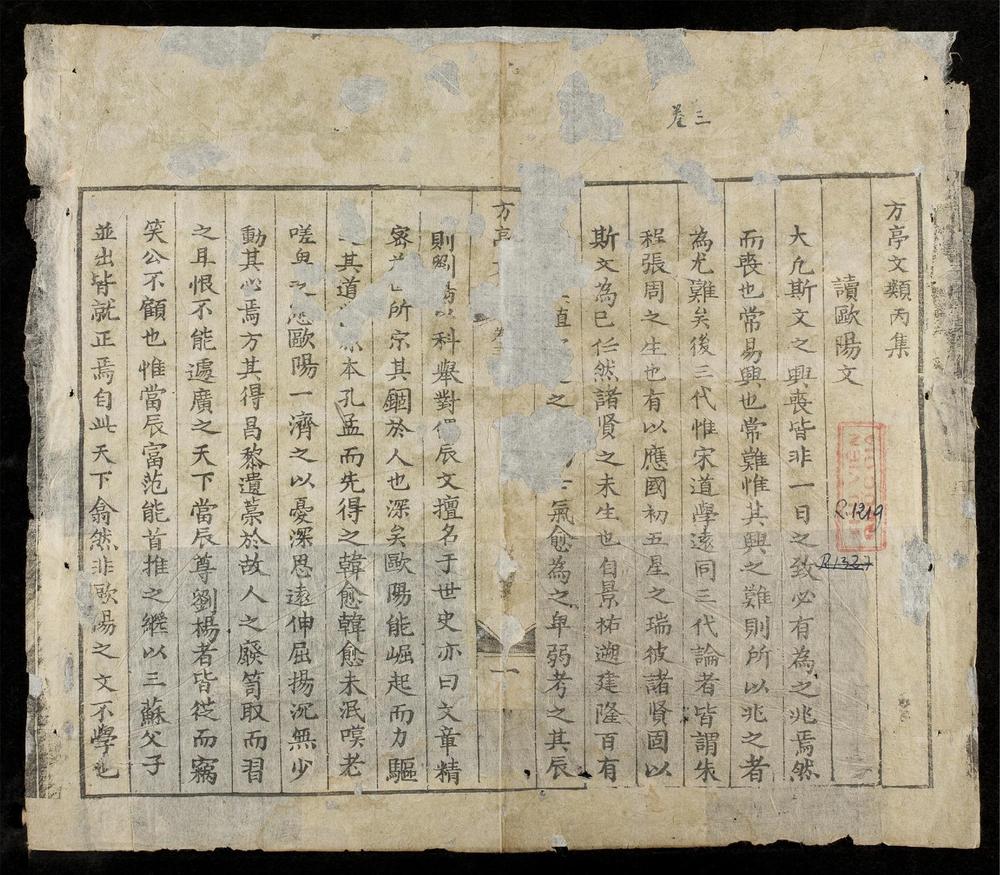 卷三
方亭文類丙集
讀歐陽文
R.1219
R1327
大凢斯文之興喪皆非一日之致必有為之兆焉然
而喪也常易興也常難惟其興之難則所以兆之者
為尤難矣後三代惟宋道學遠同三代論者皆謂朱
程張周之生也有以應國初五星之瑞彼諸賢固以
斯文為已任然諸賢之未生也自景祐遡建隆百有
植之氣愈為之卑弱考之其辰
方亭
一
則以科舉對偶辰文擅名于世史亦曰文章精
密所宗其錮於人也深矣歐陽能崛起而力驅
其道本孔孟而先得之韓愈韓愈未泯嘆老
嗟歐陽一濟之以憂深思遠伸屈揚沉無少
動其心焉方其得昌黎遺藁於故人之廢笥取而習
之且恨不能遽廣之天下當辰尊劉楊者皆從而竊
笑公不顧也惟當辰富范能首推之繼以三蘇父子
並出皆就正焉自此天下翕然非歐陽之文不學也